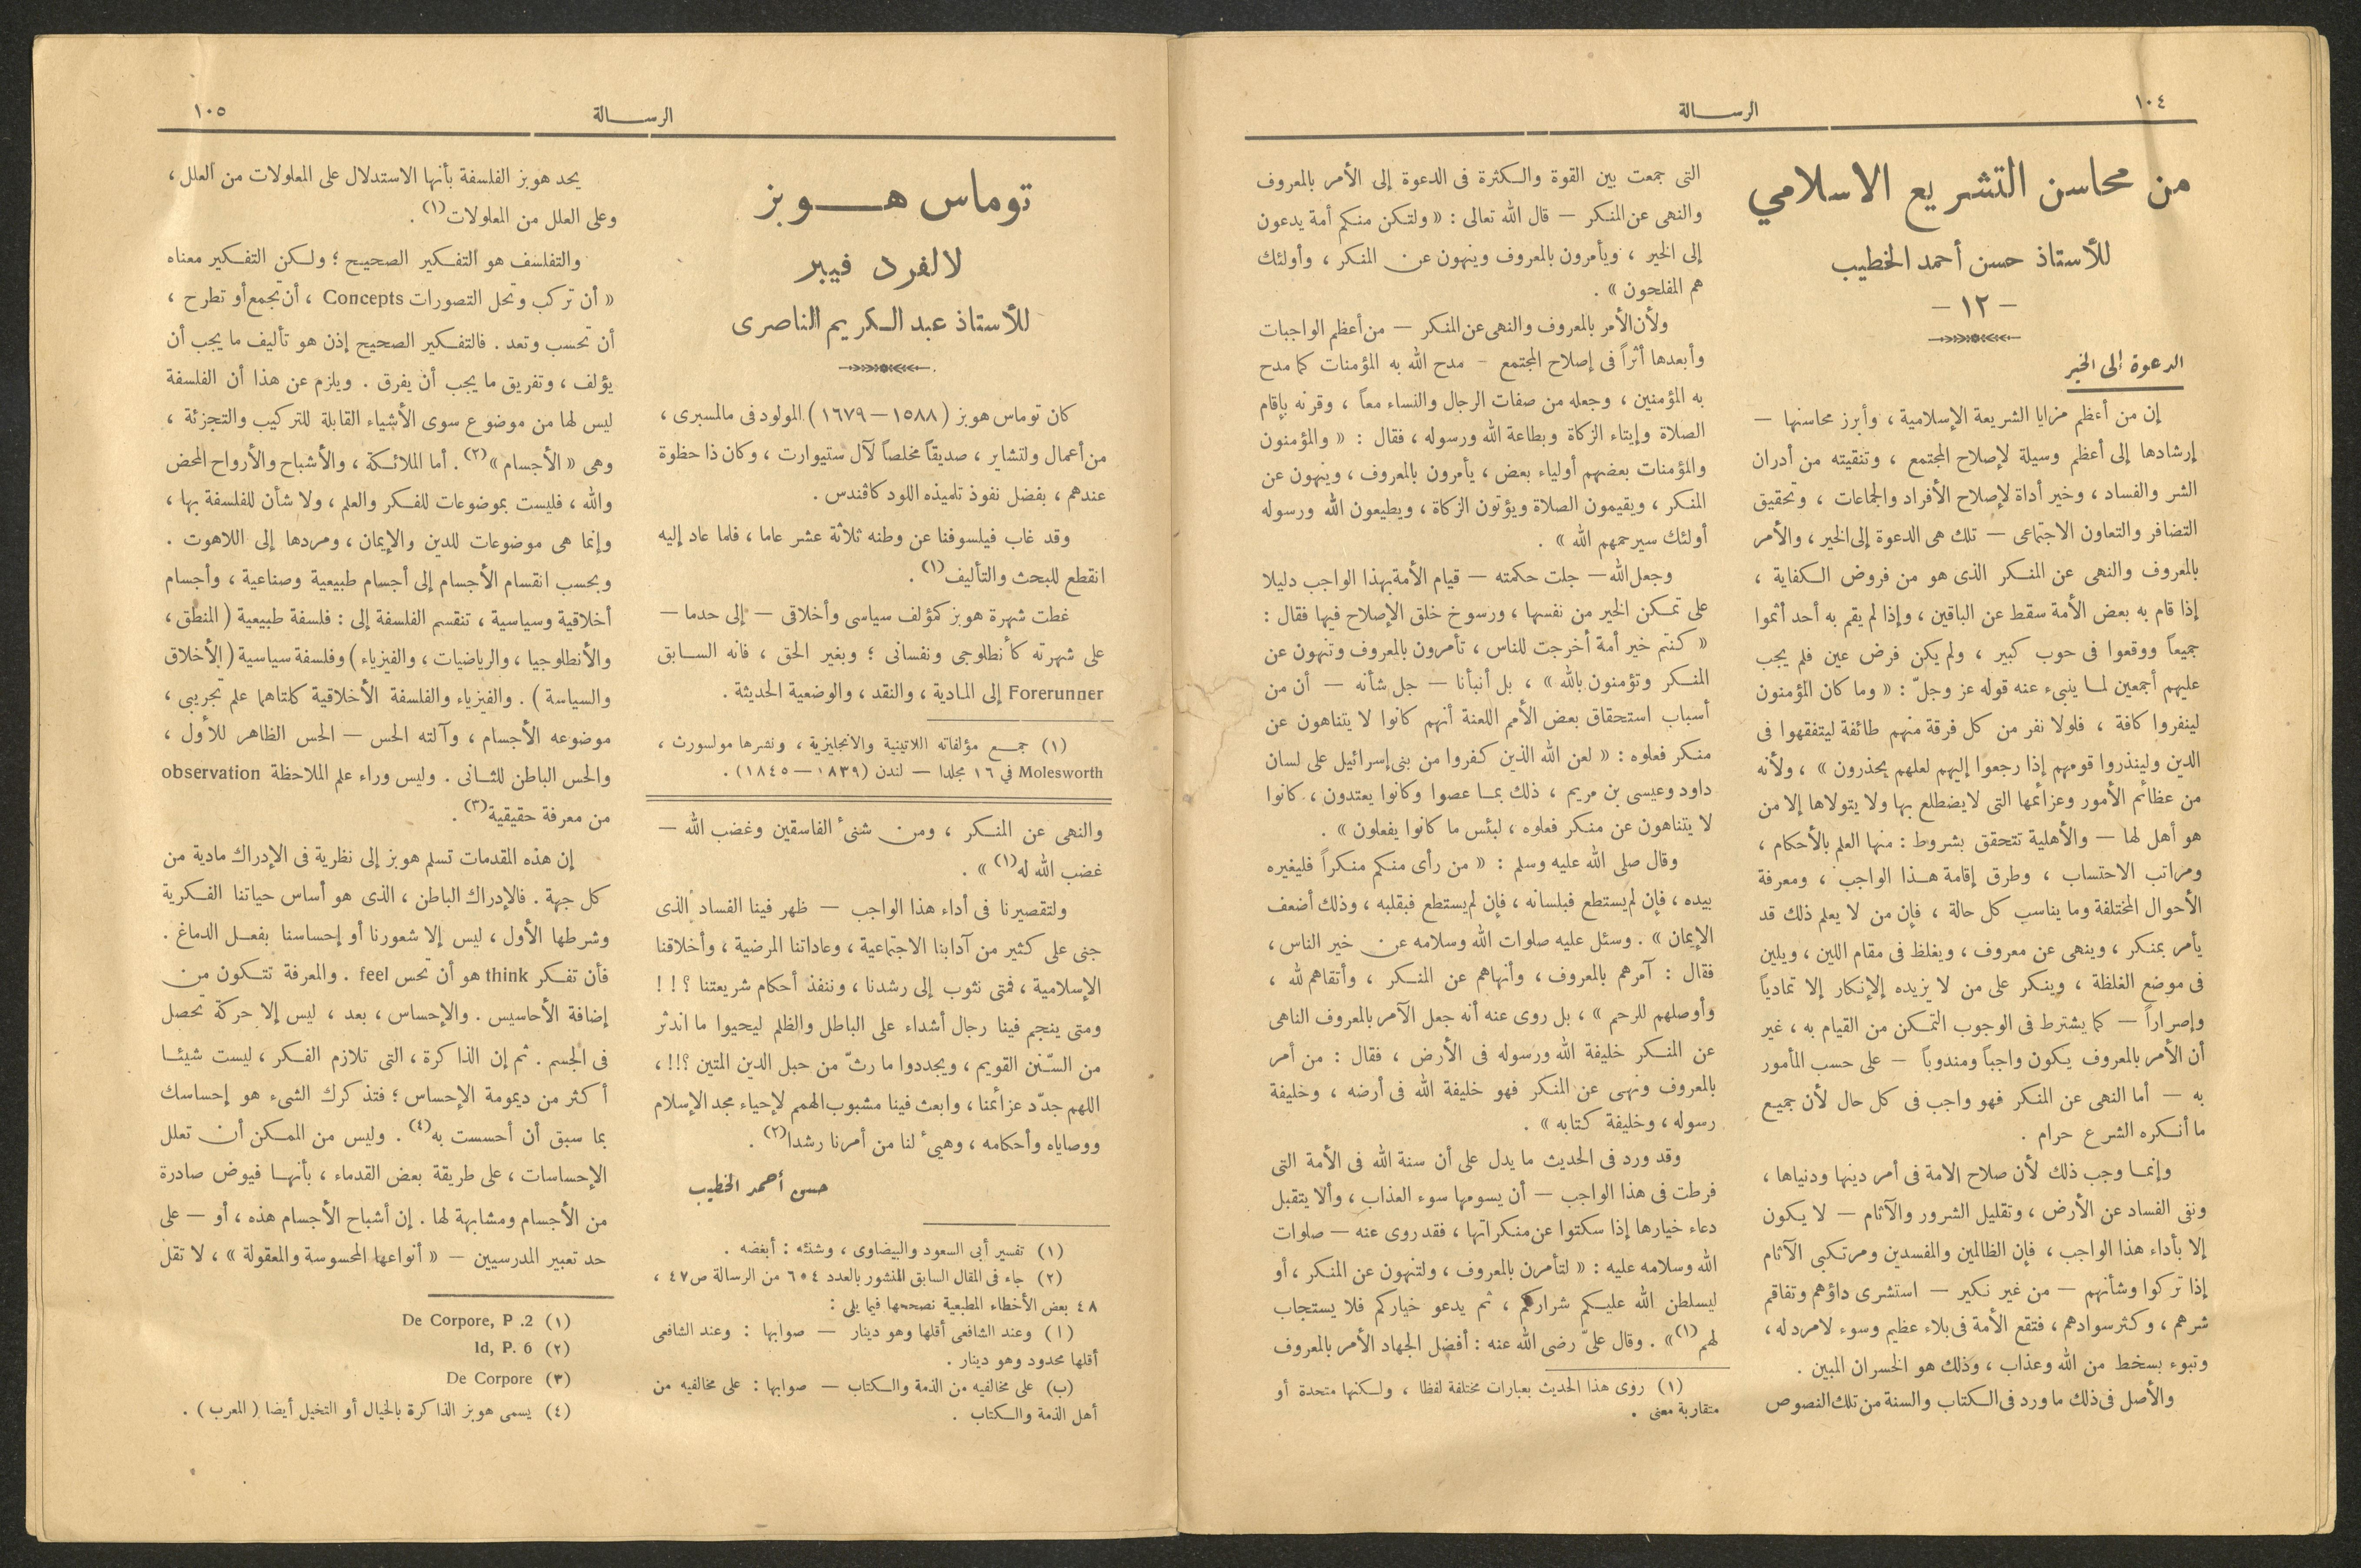 ١٠٤
الرسالة
من محاسن التشريع الاسلامي
للأستاذ حسن أحمد الخطيب
- ١٢ -
الدعوة إلى الخير
إن من أعظم مزايا الشريعة الإسلامية ، وأبرز محاسنها —
إرشادها إلى أعظم وسيلة لإصلاح المجتمع ، وتنقيته من أدران
الشر والفساد ، وخير أداة لإصلاح الأفراد والجماعات ، وتحقيق
التضافر والتعاون الاجتماعى — تلك هى الدعوة إلى الخير ، والأمر
بالمعروف والنهى عن المنكر الذى هو من فروض الكفاية ،
إذا قام به بعض الأمة سقط عن الباقين ، وإذا لم يقم به أحد أثموا
جميعاً ووقعوا فى حوب كبير ، ولم يكن فرض عين فلم يجب
عليهم أجمعين لما ينبىء عنه قوله عز وجلّ : « وما كان المؤمنون
لينفروا كافة ، فلولا نفر من كل فرقة منهم طائفة ليتفقهوا فى
الدين ولينذروا قومهم إذا رجعوا إليهم لعلهم يحذرون » ، ولأنه
من عظائم الأمور وعزائمها التى لايضطلع بها ولا يتولاها إلا من
هو أهل لها — والأهلية تتحقق بشروط : منها العلم بالأحكام ،
ومراتب الاحتساب ، وطرق إقامة هذا الواجب ، ومعرفة
الأحوال المختلفة وما يناسب كل حالة ، فإن من لا يعلم ذلك قد
يأمر بمنكر ، وينهى عن معروف ، ويغلظ فى مقام اللين ، ويلين
فى موضع الغلظة ، وينكر على من لا يزيده الإنكار إلا تمادياً
وإصراراً — كما يشترط فى الوجوب التمكن من القيام به ، غير
أن الأمر بالمعروف يكون واجباً ومندوباً — على حسب المأمور
به — أما النهى عن المنكر فهو واجب فى كل حال لأن جميع
ما أنكره الشرع حرام .
وإنما وجب ذلك لأن صلاح الامة فى أمر دينها ودنياها ،
ونفى الفساد عن الأرض ، وتقليل الشرور والآثام — لا يكون
إلا بأداء هذا الواجب ، فإن الظالمين والمفسدين ومرتكبى الآثام
إذا تركوا وشأنهم — من غير نكير — استشرى داؤهم وتفاقم
شرهم ، وكثر سوادهم ، فتقع الأمة فى بلاء عظيم وسوء لامرد له ،
وتبوء بسخط من الله وعذاب ، وذلك هو الخسران المبين .
والأصل فى ذلك ما ورد فى الكتاب والسنة من تلك النصوص
التى جمعت بين القوة والكثرة فى الدعوة إلى الأمر بالمعروف
والنهى عن المنكر — قال الله تعالى : « ولتكن منكم أمة يدعون
إلى الخير ، ويأمرون بالمعروف وينهون عن المنكر ، وأولئك
هم المفلحون » .
ولأن الأمر بالمعروف والنهى عن المنكر — من أعظم الواجبات
وأبعدها أثراً فى إصلاح المجتمع - مدح الله به المؤمنات كما مدح
به المؤمنين ، وجعله من صفات الرجال والنساء معاً ، وقرنه بإقام
الصلاة وإيتاء الزكاة وبطاعة الله ورسوله ، فقال : « والمؤمنون
والمؤمنات بعضهم أولياء بعض ، يأمرون بالمعروف ، وينهون عن
المنكر ، ويقيمون الصلاة ويؤتون الزكاة ، ويطيعون الله ورسوله
أولئك سيرحمهم الله » .
وجعل الله — جلت حكمته — قيام الأمة بهذا الواجب دليلا
على تمكن الخير من نفسها ، ورسوخ خلق الإصلاح فيها فقال :
« كنتم خير أمة أخرجت للناس ، تأمرون بالمعروف وتنهون عن
المنكر وتؤمنون بالله » ، بل أنبأنا — جل شأنه — أن من
أسباب استحقاق بعض الأمم اللعنة أنهم كانوا لا يتناهون عن
منكر فعلوه : « لعن الله الذين كفروا من بنى إسرائيل على لسان
داود وعيسى بن مريم ، ذلك بما عصوا وكانوا يعتدون ، كانوا
لا يتناهون عن منكر فعلوه ، لبئس ما كانوا يفعلون » .
وقال صلى الله عليه وسلم : « من رأى منكم منكراً فليغيره
بيده ، فإن لم يستطع فبلسانه ، فإن لم يستطع فبقلبه ، وذلك أضعف
الإيمان » . وسئل عليه صلوات الله وسلامه عن خير الناس ،
فقال : آمرهم بالمعروف ، وأنهاهم عن المنكر ، وأتقاهم لله ،
وأوصلهم للرحم » ، بل روى عنه أنه جعل الآمر بالمعروف الناهى
عن المنكر خليفة الله ورسوله فى الأرض ، فقال : من أمر
بالمعروف ونهى عن المنكر فهو خليفة الله فى أرضه ، وخليفة
رسوله ، وخليفة كتابه » .
وقد ورد فى الحديث ما يدل على أن سنة الله فى الأمة التى
فرطت فى هذا الواجب — أن يسومها سوء العذاب ، وألا يتقبل
دعاء خيارها إذا سكتوا عن منكراتها ، فقد روى عنه — صلوات
الله وسلامه عليه : « لتأمرن بالمعروف ، ولتنهون عن المنكر ، أو
ليسلطن الله عليكم شراركم ، ثم يدعو خياركم فلا يستجاب
لهم (١)» . وقال علىّ رضى الله عنه : أفضل الجهاد الأمر بالمعروف
(١) روى هذا الحديث بعبارات مختلفة لفظا ، ولكنها متحدة أو
متقاربة معنى .
الرسالة
١٠٥
توماس هوبز
لالفرد فيبر
للأستاذ عبد الكريم الناصرى
كان توماس هوبز (١٥٨٨ — ١٦٧٩) المولود فى مالمسبرى ،
من أعمال ولتشاير ، صديقاً مخلصاً لآل ستيوارت ، وكان ذا حظوة
عندهم ، بفضل نفوذ تلميذه اللود كاڤندس .
وقد غاب فيلسوفنا عن وطنه ثلاثة عشر عاما ، فلما عاد إليه
انقطع للبحث والتأليف (١) .
غطت شهرة هوبز كمؤلف سياسى وأخلاقى — إلى حدما —
على شهرته كأنطلوجى ونفسانى ؛ وبغير الحق ، فانه السابق
Forerunner إلى المادية ، والنقد ، والوضعية الحديثة .
(١) جمع مؤلفاته اللاتينية والانجليزية ، ونشرها مولسورث ،
Molesworth في ١٦ مجلدا — لندن (١٨٣٩ — ١٨٤٥) .
والنهى عن المنكر ، ومن شنئ الفاسقين وغضب الله —
غضب الله له (١) » .
ولتقصيرنا فى أداء هذا الواجب — ظهر فينا الفساد الذى
جنى على كثير من آدابنا الاجتماعية ، وعاداتنا المرضية ، وأخلاقنا
الإسلامية ، فمتى نثوب إلى رشدنا ، وننفذ أحكام شريعتنا ؟ ! !
ومتى ينجم فينا رجال أشداء على الباطل والظلم ليحيوا ما اندثر
من السّنن القويم ، ويجددوا ما رثّ من حبل الدين المتين ؟!! ،
اللهم جدّد عزائمنا ، وابعث فينا مشبوب الهمم لإحياء مجد الإسلام
ووصاياه وأحكامه ، وهيئ لنا من أمرنا رشدا (٢) .
حسن أحمد الخطيب
(١) تفسير أبى السعود والبيضاوى ، وشنئه : أبغضه .
(٢) جاء فى المقال السابق المنشور بالعدد ٦٥٤ من الرسالة ص٤٧ ،
٤٨ بعض الأخطاء المطبعية نصححها فيما يلى :
(ا) وعند الشافعى أقلها وهو دينار — صوابها : وعند الشافعى
أقلها محدود وهو دينار .
(ب) على مخالفيه من الذمة والكتاب — صوابها : على مخالفيه من
أهل الذمة والكتاب .
يحد هوبز الفلسفة بأنها الاستدلال على المعلولات من العلل ،
وعلى العلل من المعلولات (١) .
والتفلسف هو التفكير الصحيح ؛ ولكن التفكير معناه
« أن تركب وتحل التصورات Concepts ، أن تجمع أو تطرح ،
أن تحسب وتعد . فالتفكير الصحيح إذن هو تأليف ما يجب أن
يؤلف ، وتفريق ما يجب أن يفرق . ويلزم عن هذا أن الفلسفة
ليس لها من موضوع سوى الأشياء القابلة للتركيب والتجزئة ،
وهى « الأجسام » (٢) . أما الملائكة ، والأشباح والأرواح المحض
والله ، فليست بموضوعات للفكر والعلم ، ولا شأن للفلسفة بها ،
وإنما هى موضوعات للدين والإيمان ، ومردها إلى اللاهوت .
وبحسب انقسام الأجسام إلى أجسام طبيعية وصناعية ، وأجسام
أخلاقية وسياسية ، تنقسم الفلسفة إلى : فلسفة طبيعية ( المنطق ،
والأنطلوجيا ، والرياضيات ، والفيزياء ) وفلسفة سياسية ( الأخلاق
والسياسة ) . والفيزياء والفلسفة الأخلاقية كلتاهما علم تجريبى ،
موضوعه الأجسام ، وآلته الحس — الحس الظاهر للأول ،
والحس الباطن للثانى . وليس وراء علم الملاحظة observation
من معرفة حقيقية (٣) .
إن هذه المقدمات تسلم هوبز إلى نظرية فى الإدراك مادية من
كل جهة . فالإدراك الباطن ، الذى هو أساس حياتنا الفكرية
وشرطها الأول ، ليس إلا شعورنا أو إحساسنا بفعل الدماغ .
فأن تفكر think هو أن تحس feel . والمعرفة تتكون من
إضافة الأحاسيس . والإحساس ، بعد ، ليس إلا حركة تحصل
فى الجسم . ثم إن الذاكرة ، التى تلازم الفكر ، ليست شيئا
أكثر من ديمومة الإحساس ؛ فتذكرك الشىء هو إحساسك
بما سبق أن أحسست به (٤) . وليس من الممكن أن تعلل
الإحساسات ، على طريقة بعض القدماء ، بأنها فيوض صادرة
من الأجسام ومشابهة لها . إن أشباح الأجسام هذه ، أو — على
حد تعبير المدرسيين — « أنواعها المحسوسة والمعقولة » ، لا تقل
(١) De Corpore, P .2
(٢) Id, P. 6
(٣) De Corpore
(٤) يسمى هوبز الذاكرة بالخيال أو التخيل أيضا ( المعرب ) .